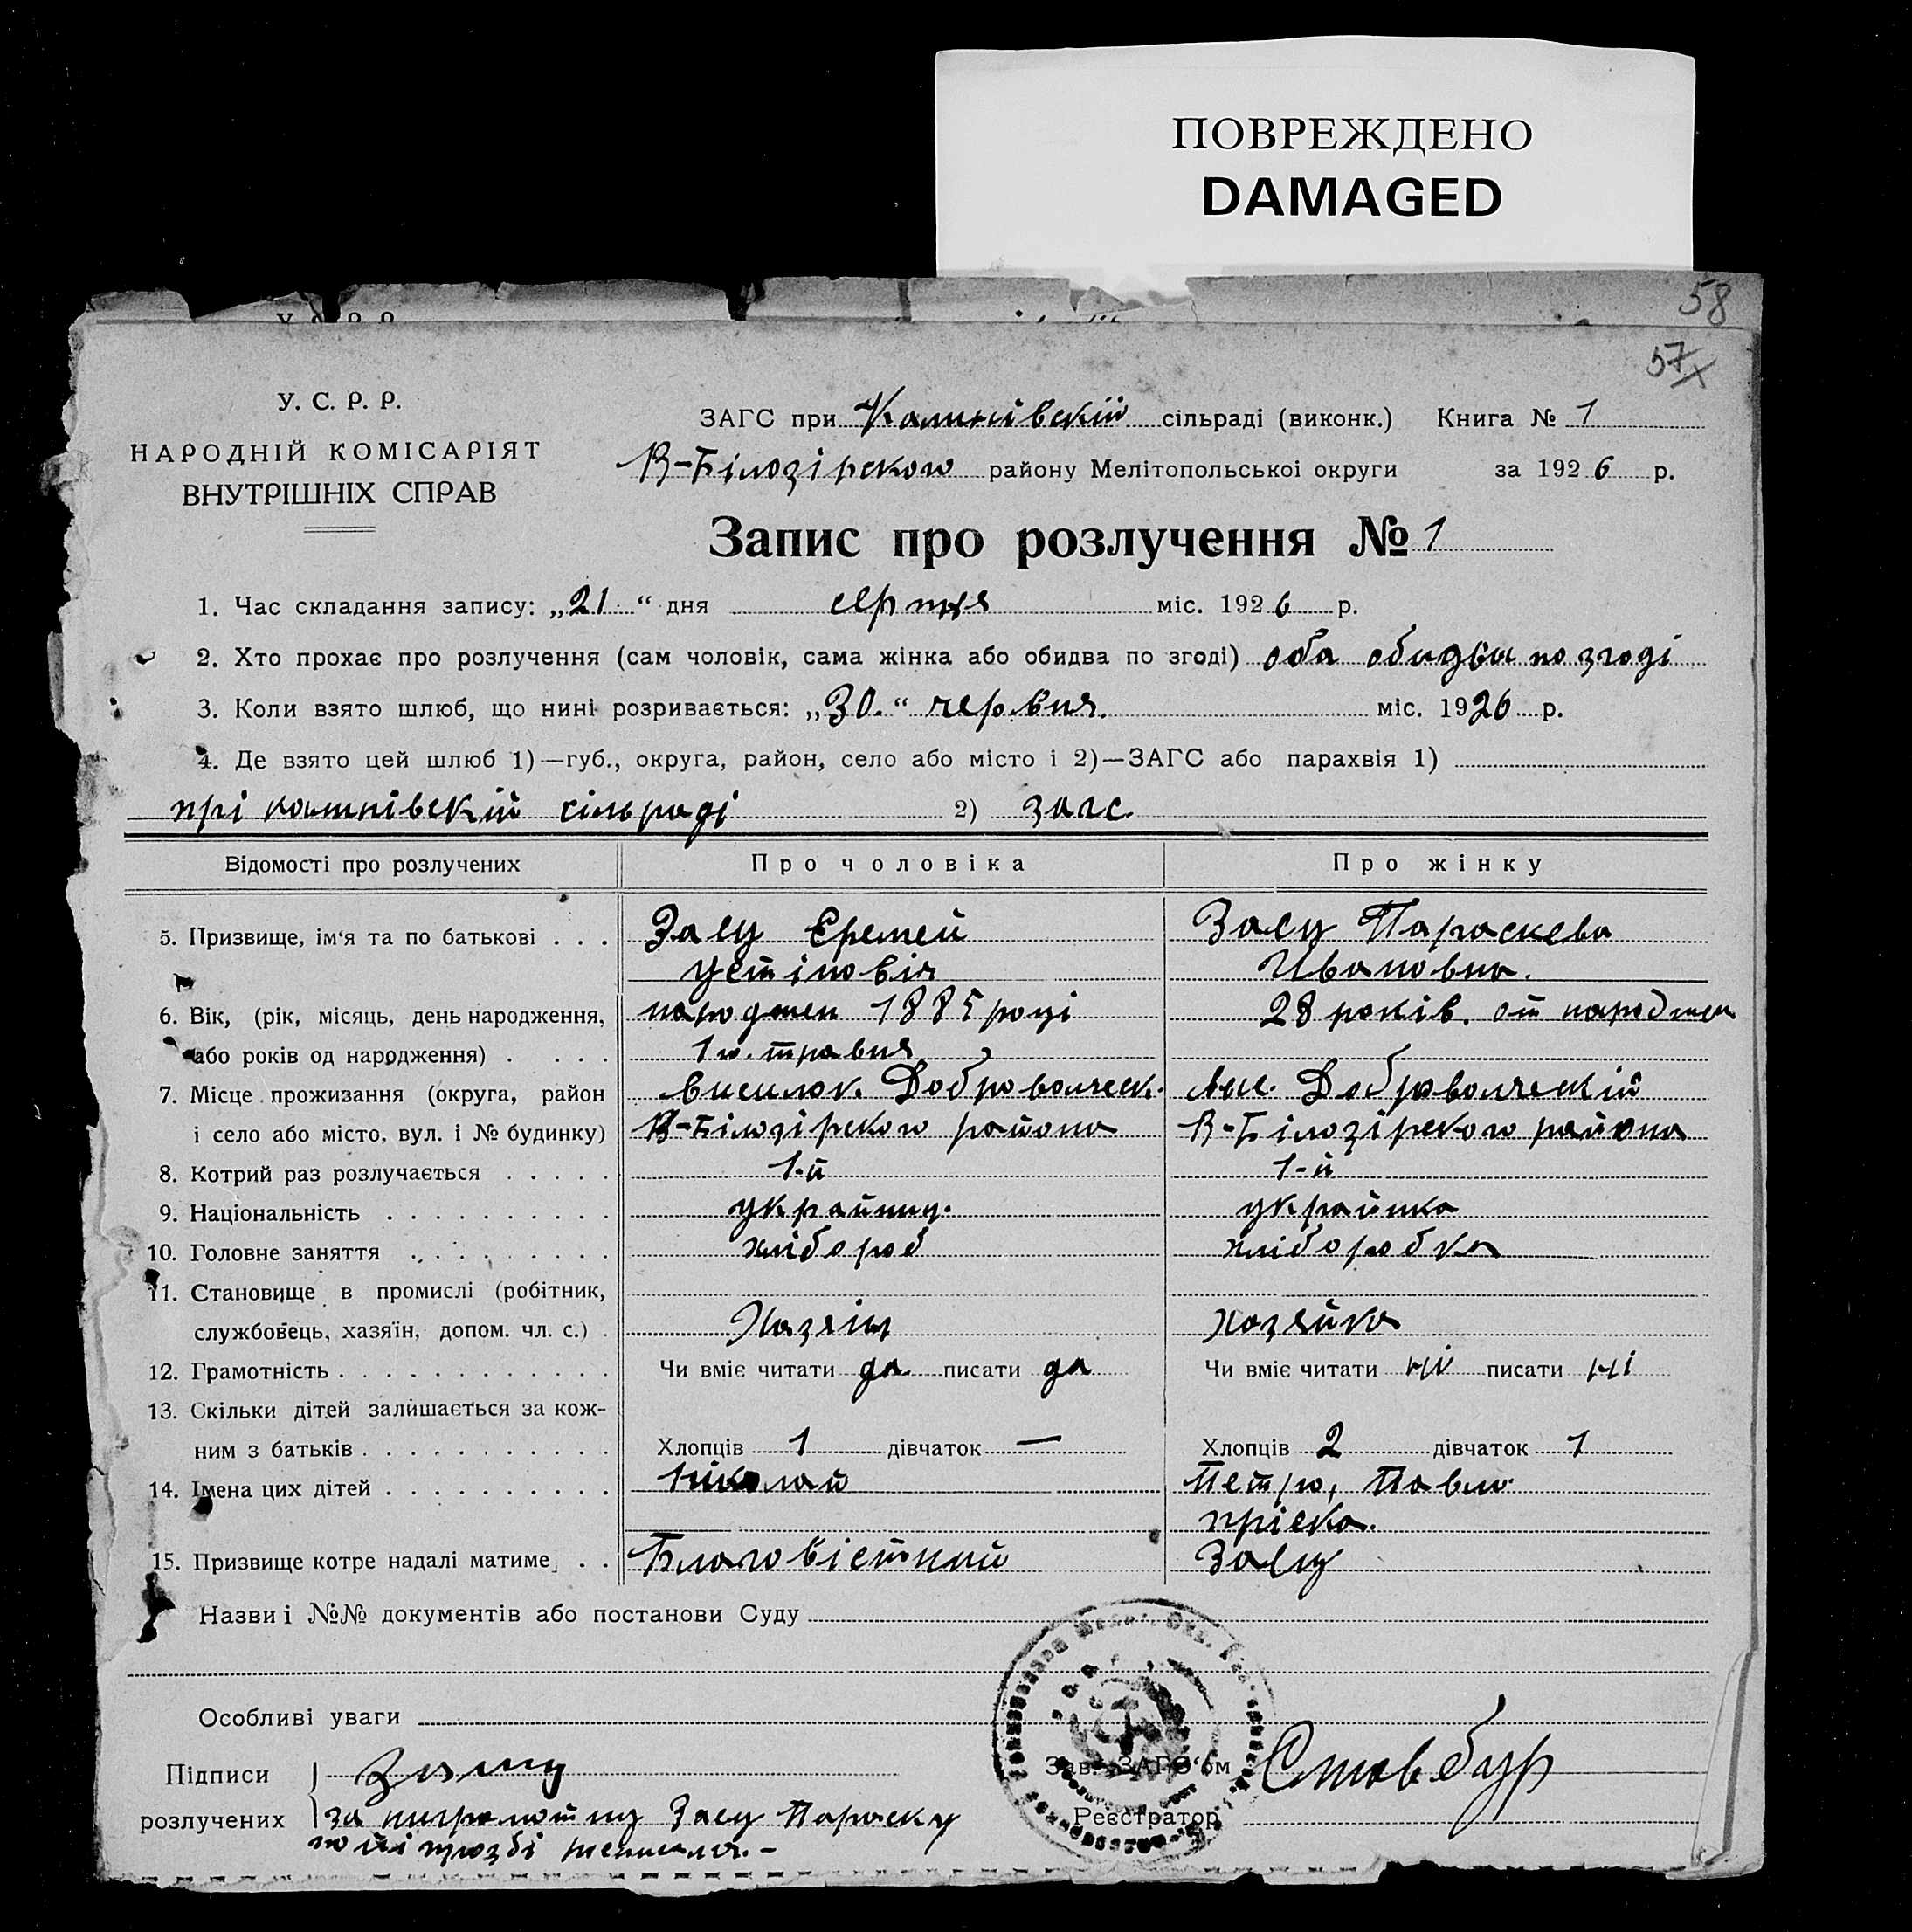 ПОВРЕЖДЕНО
DAMAGED
58
57
У. С. Р. Р.
НАРОДНІЙ КОМІСАРІЯТ
ВНУТРІШНІХ СПРАВ
ЗАГС при сільраді (виконк.) Книга № 1
В-Білозірского району Мелітопольської округи за 1926 р.
Запис про розлучення № 1
1. Час складання запису: „21“ дня серпня міс. 1926 р.
2. Хто прохає про розлучення (сам чоловік, сама жінка або обидва по згоді) оба обидвы по згоді
3. Коли взято шлюб, що нині розривається: „30.“ червня. міс. 1926 р.
4. Де взято цей шлюб 1)—губ., округа, район, село або місто і 2)—ЗАГС або парахвія 1)
прі сільраді 2) загс.
Відомості про розлучених Про чоловіка Про жінку
5. Призвище, ім‘я та по батькові . . . Заец Еремей Заец Параскева
Устіновіч Ивановна.
6. Вік, (рік, місяць, день народження, народжен 1885 році 28 років. от народжен
або років од народження) . . . . 1го. травня
7. Місце проживання (округа, район висилок. Добровольческ. Добровольческій
і село або місто, вул. і № будинку) В-Білозірского района В-Білозірского района
8. Котрий раз розлучається . . . . . 1-й 1-й
9. Національність . . . . . . . . . . україниц. українка
10. Головне заняття . . . . . . . . . хлібороб хліборобка
11. Становище в промислі (робітник,
службовець, хазяїн, допом. чл. с.) . Хазяін хозяйка
12. Грамотність . . . . . . . . . . . . Чи вміє читати да писати да Чи вміє читати ні писати ні
13. Скільки дітей залишається за кож-
ним з батьків . . . . . . . . . . . Хлопців 1 дівчаток — Хлопців 2 дівчаток 1
14. Імена цих дітей . . . . . . . . . . Ніколай Петро, Павло
пріска.
15. Призвище котре надалі матиме . . Благовістний Заец
Назви і №№ документів або постанови Суду
Особливі уваги
Підписи
розлучених за Заец Параску
по її прозбі
Зав. ЗАГС‘ом Стовбур
Реєстратор